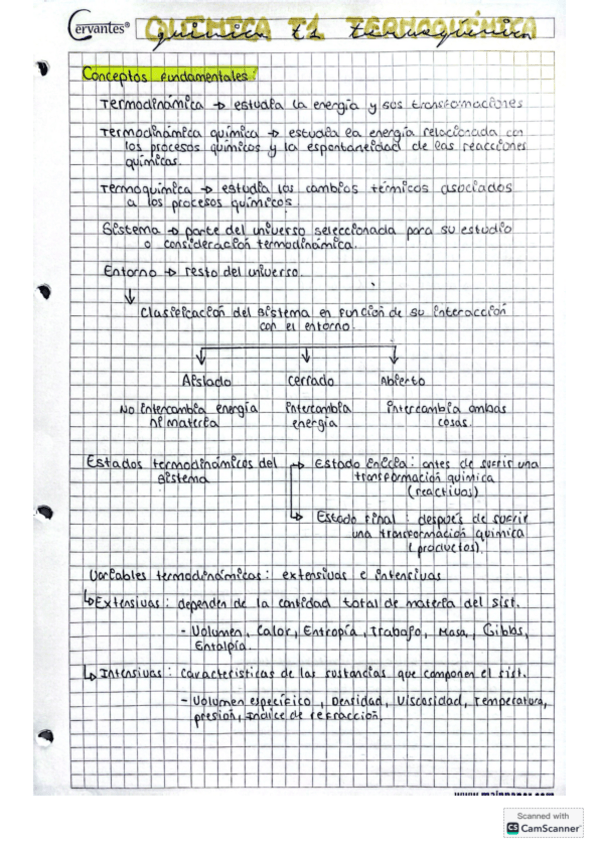 Cervantes®
QUÍMICA T1 TERMOQUÍMICA
química t1 termoquímica
Conceptos fundamentales:
Termodinámica → estudia la energía y sus transformaciones
Termodinámica química → estudia la energía relacionada con
los procesos químicos y la espontaneidad de las reacciones
químicas.
Termoquímica → estudia los cambios térmicos asociados
a los procesos químicos.
Sistema → parte del universo seleccionada para su estudio
o consideración termodinámica.
Entorno → resto del universo.
↓
Clasificación del sistema en función de su interacción
con el entorno.
Aislado cerrado Abierto
No intercambia energía intercambia intercambia ambas
ni materia energía cosas.
Estados termodinámicos del → Estado inicial: antes de sufrir una
sistema transformación química
(reactivos)
↳ Estado final: después de sufrir
una transformación química
(productos).
Variables termodinámicas: extensivas e intensivas
↳ Extensivas: dependen de la cantidad total de materia del sist.
- Volumen, Calor, Entropía, Trabajo, Masa, Gibbs,
Entalpía.
↳ Intensivas: características de las sustancias que componen el sist.
- Volumen específico, Densidad, Viscosidad, Temperatura,
presión, Indice de refracción.
Scanned with
CS CamScanner